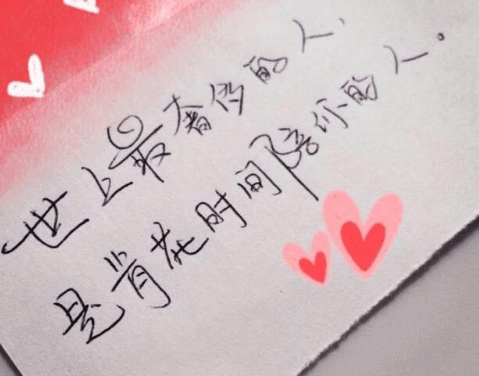 世上最奢侈的人，
是肯花时间陪你的人。